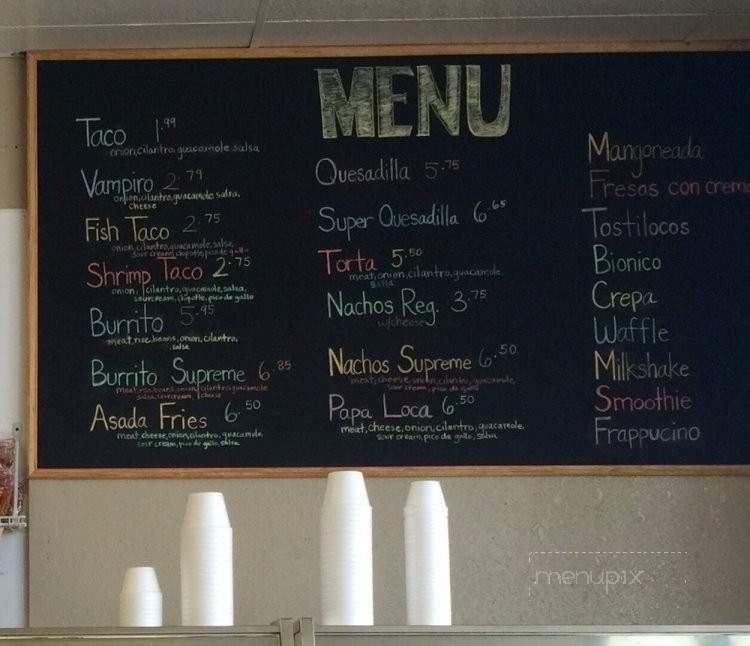 MENU
Taco 1.99
onion, cilantro, guacamole salsa
Vampiro 2.79
onion, cilantro, guacamole salsa,
cheese
Fish Taco 2.75
onion, cilantro, guacamole, salsa,
sour cream, chipotle, pico de gallo
Shrimp Taco 2.75
onion, cilantro, guacamole, salsa,
sour cream, chipotle, pico de gallo
Burrito 5.95
meat, rice, beans, onion, cilantro,
salsa
Burrito Supreme 6.85
meat, rice, beans, onion, cilantro, guacamole
salsa, sour cream, cheese
Asada Fries 6.50
meat, cheese, onion, cilantro, guacamole,
sour cream, pico de gallo, salsa
Quesadilla 5.75
Super Quesadilla 6.65
Torta 5.50
meat, onion, cilantro, guacamole,
salsa
Nachos Reg. 3.75
w/cheese
Nachos Supreme 6.50
meat, cheese, onion, cilantro, guacamole,
sour cream, pico de gallo
Papa Loca 6.50
meat, cheese, onion, cilantro, guacamole,
sour cream, pico de gallo, salsa
Mangoneada
Fresas con crema
Tostilocos
Bionico
Crepa
Waffle
Milkshake
Smoothie
Frappucino
menupix